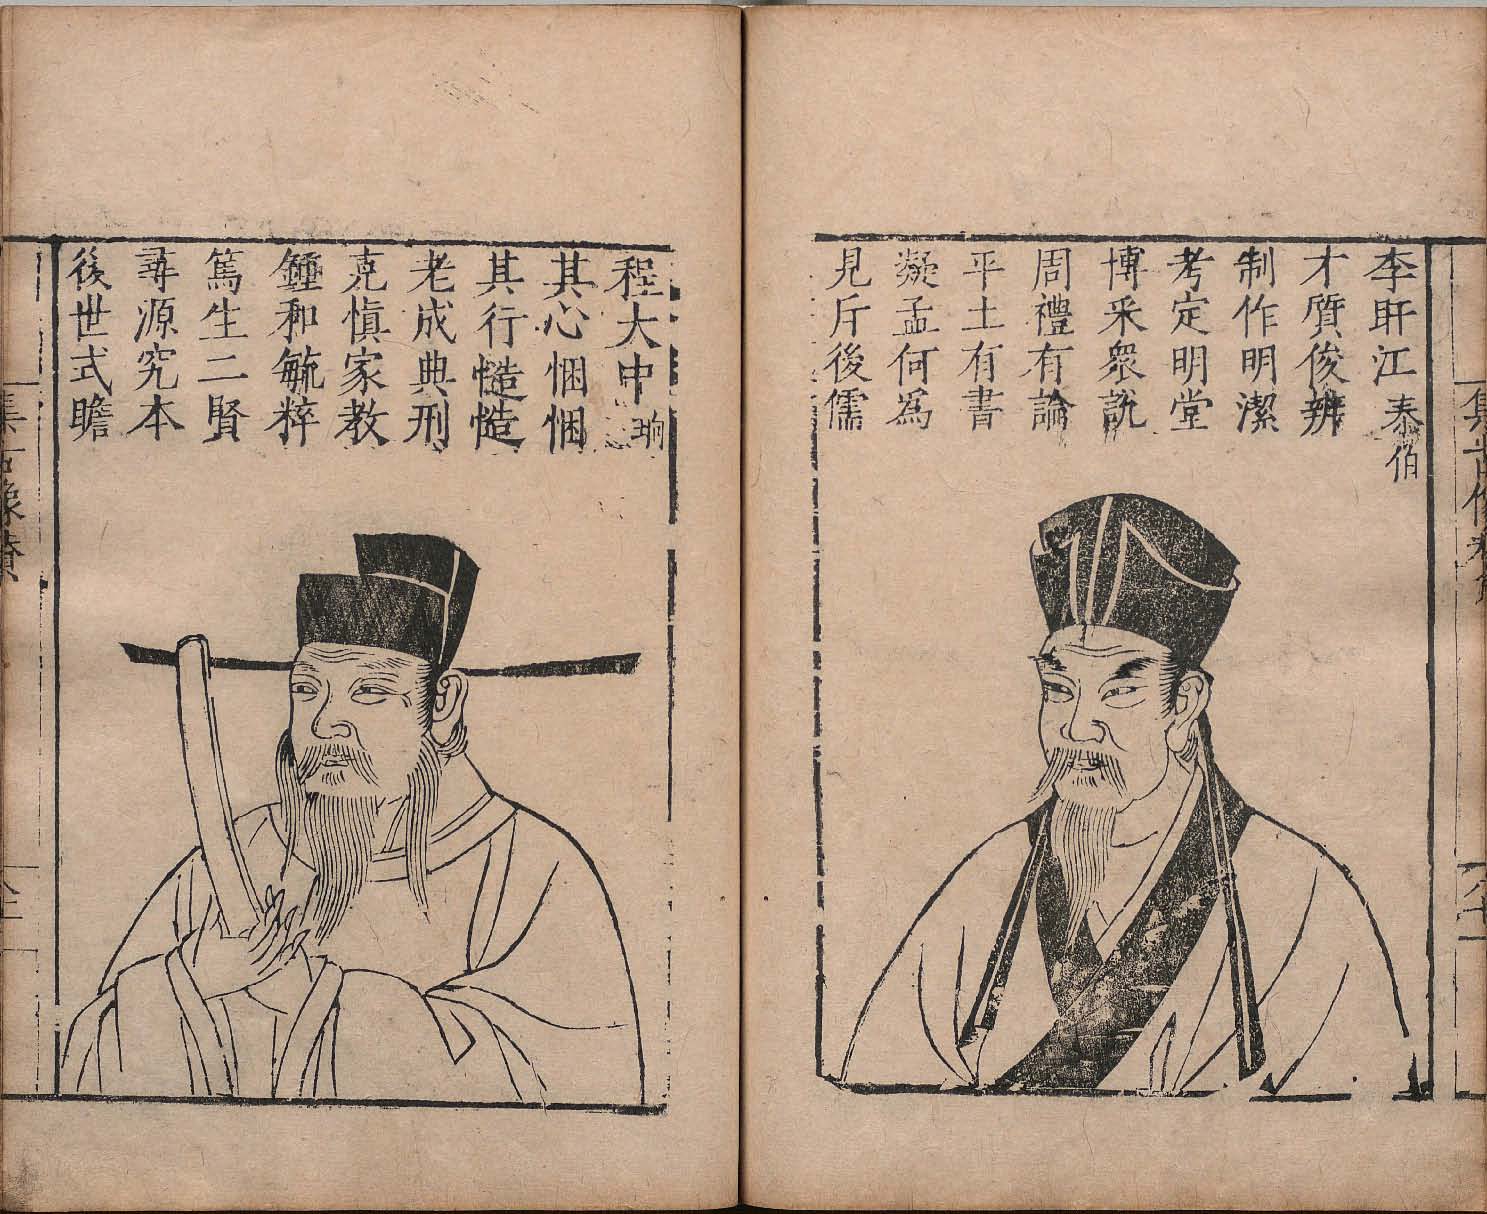 李盱江泰伯
才質俊辨
制作明潔
考定明堂
博采衆說
周禮有論
平土有書
凝孟何爲
見斥後儒
程大中珦
其心悃悃
其行慥慥
老成典刑
克慎家教
鍾和毓粹
篤生二賢
尋源究本
後世式瞻